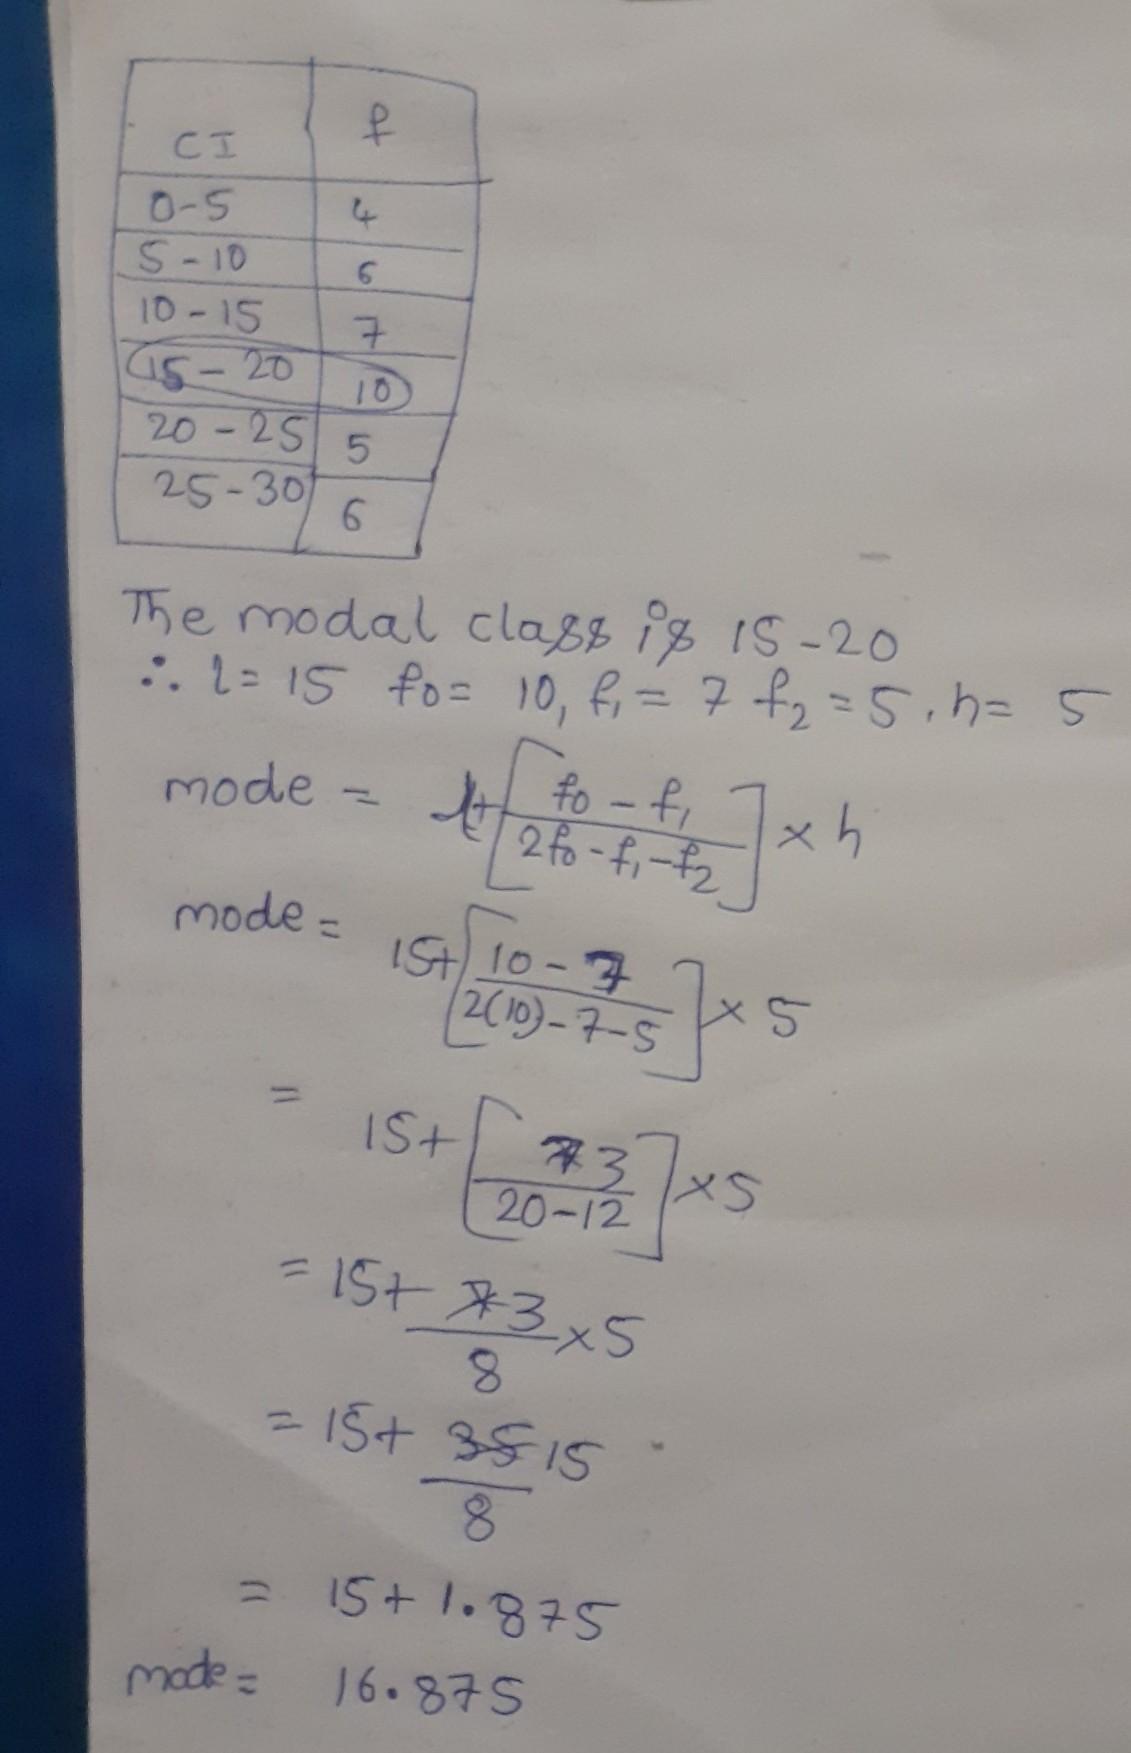 CI f
0-5 4
5-10 6
10-15 7
15-20 10
20-25 5
25-30 6
The modal class is 15-20
∴ l= 15 f0= 10, f1= 7 f2=5, h= 5
mode = l+[f0-f1/2f0-f1-f2]×h
mode = 15+[10-7/2(10)-7-5]×5
= 15+[3/20-12]×5
= 15+3/8×5
= 15+15/8
= 15+1.875
mode= 16.875